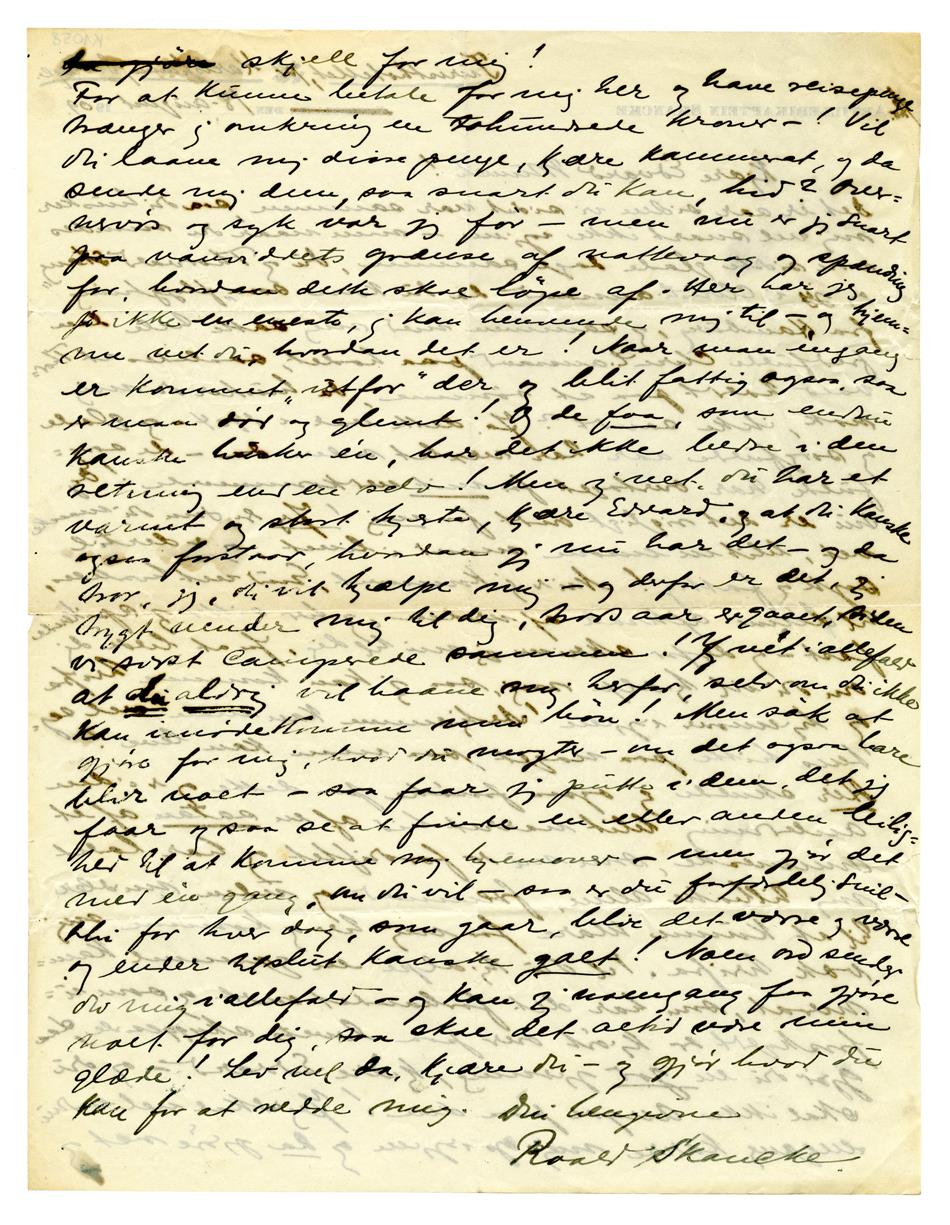 skjell for mig!
For at kunne betale for mig her og have reisepenge
trænger jeg omkring en tohundrede kroner –! Vil
du laane mig disse penge, kjære kammerat, og da
sende mig dem, saa snart du kan, hid? Over=
nervøs og syk var jeg før – men nu er jeg snart
paa vanviddets grændse af nattevaag og spænding
for, hvordan dette skal løpe af. Her har jeg
jo ikke en eneste, jeg kan henvende mig til – og hjem=
me vet du, hvordan det er! Naar man engang
er kommet "utfor" der og blit fattig ogsaa, saa
er man død og glemt! Og de faa, som endnu
kanske husker én, har det ikke bedre i den
retning end en selv! Men jeg vet, du har et
varmt og stort hjerte, kjære Edvard, og at du kanske
ogsaa forstaar, hvordan jeg nu har det – og da
tror jeg, du vil hjælpe mig – og derfor er det, jeg
trygt vender mig til dig, trods aar er gaaet, siden
vi sidst camperede sammen! Jeg vét iallefald
at du aldrig vil haane mig herfor, selv om du ikke
kan imødekomme min bøn! Men søk at
gjøre for mig, hvad du magter – om det ogsaa bare
blir noet – saa faar jeg putte i dem, det jeg
faar og saa se at finde en eller anden leilig=
hed til at komme mig hjemover – men gjør det
med én gang, om du vil – saa er du forfærdelig snil –
thi for hver dag, som gaar, blir det værre og værre
og ender tilslut kanske galt! Noen ord sender
du mig iallefald – og kan jeg noengang faa gjøre
noet for dig, saa skal det altid være min
glæde! Lev vel da, kjære du – og gjør hvad du
kan for at redde mig. Din hengivne
Roald Skancke.